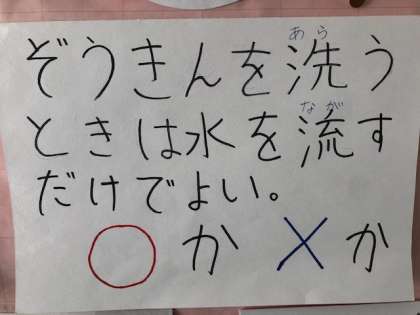 ぞうきんを洗う
ときは水を流す
だけでよい。
○か×か